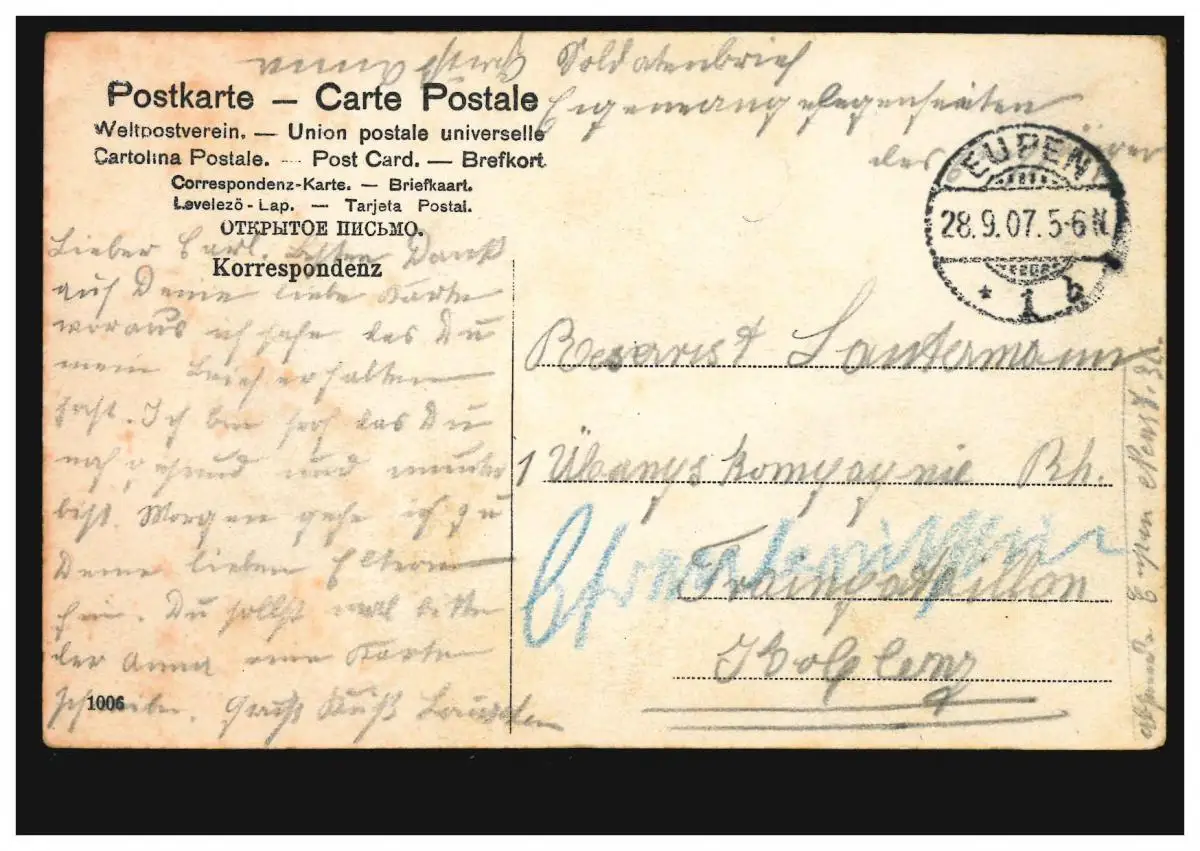 Soldatenbrief
Eigenangelegenheiten
des
Postkarte – Carte Postale
Weltpostverein. — Union postale universelle
Cartolina Postale. — Post Card. — Brefkort
Correspondenz-Karte. — Briefkaart.
Levelezö-Lap. — Tarjeta Postal.
ОТКРЫТОЕ ПИСЬМО.
Korrespondenz
EUPEN
28.9.07. 5-6 N.
* 1 b
Lieber Carl. Besten Dank
auf Deine liebe Karte
woraus ich sehe das Du
mein Brief erhalten
hast. Ich bin froh das Du
noch gesund und munter
bist. Morgen gehe ich zu
Deine lieben Eltern
hin. Du sollst mal bitte
der Anna eine Karte
schreiben. Gruß Kuß
1006
Reservist Lautermann
1 Übungskompagnie Rh.
Trainbataillon
Koblenz
Absender Eupen